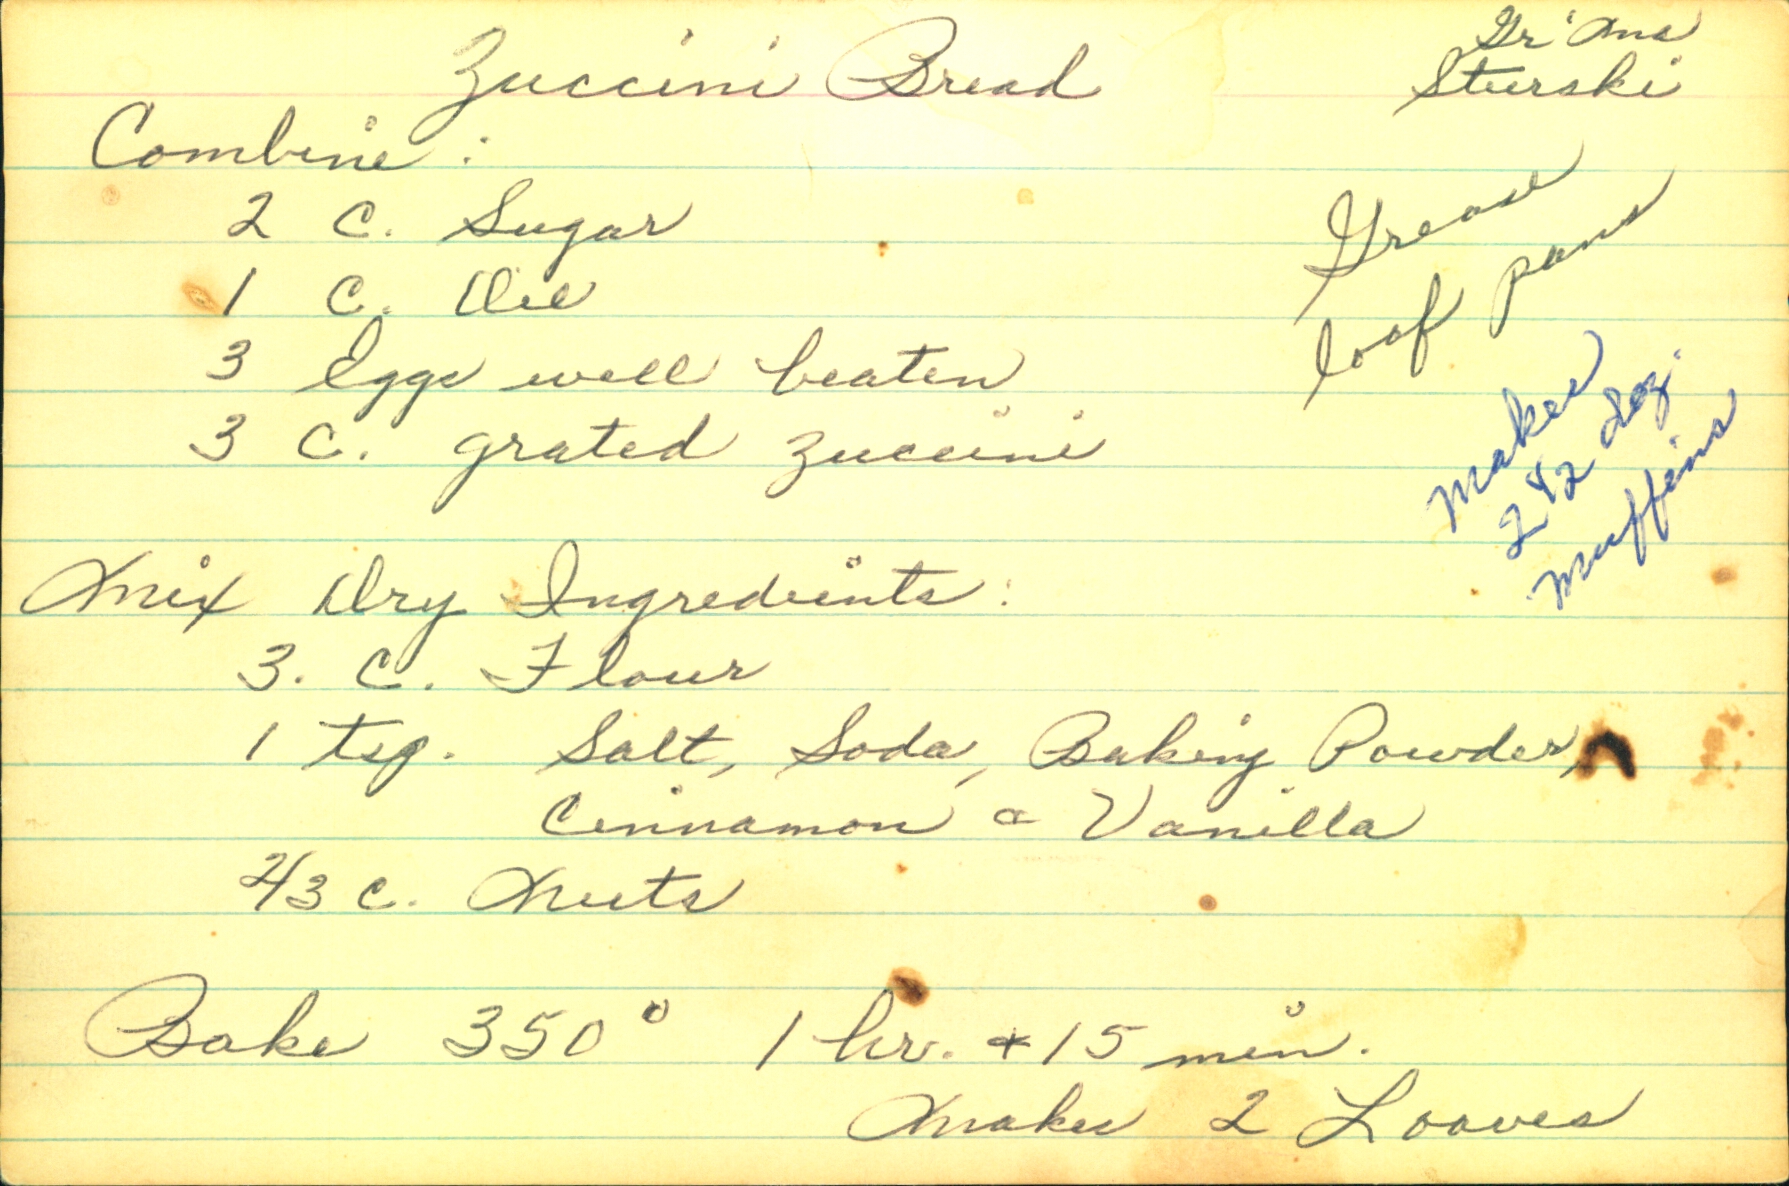 Zuccini Bread
Gr'Ma
Sturski
Combine:
2 C. Sugar
1 C. Oil
3 Eggs well beaten
3 C. grated zuccini
Grease
loaf pans
makes
2 1/2 doz.
muffins
Mix Dry Ingredients:
3. C. Flour
1 tsp. Salt, Soda, Baking Powder,
Cinnamon & Vanilla
2/3 C. Nuts
Bake 350° 1 hr. & 15 min.
Makes 2 Loaves